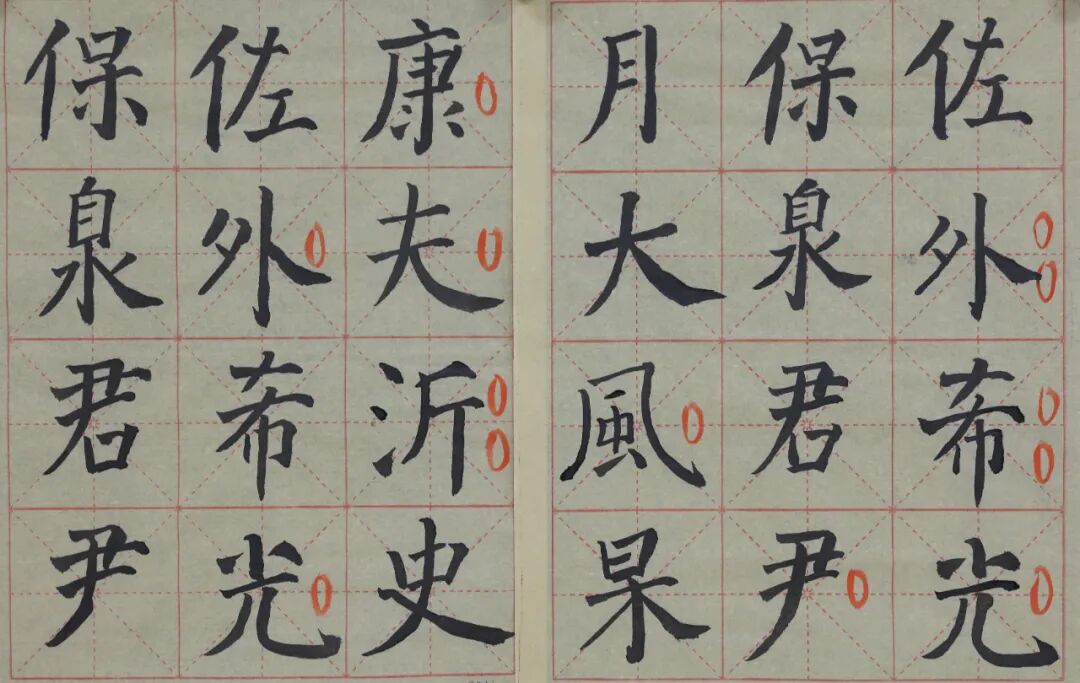 佐外希光
保泉君尹
月大風杲
康夫沂史
佐外希光
保泉君尹